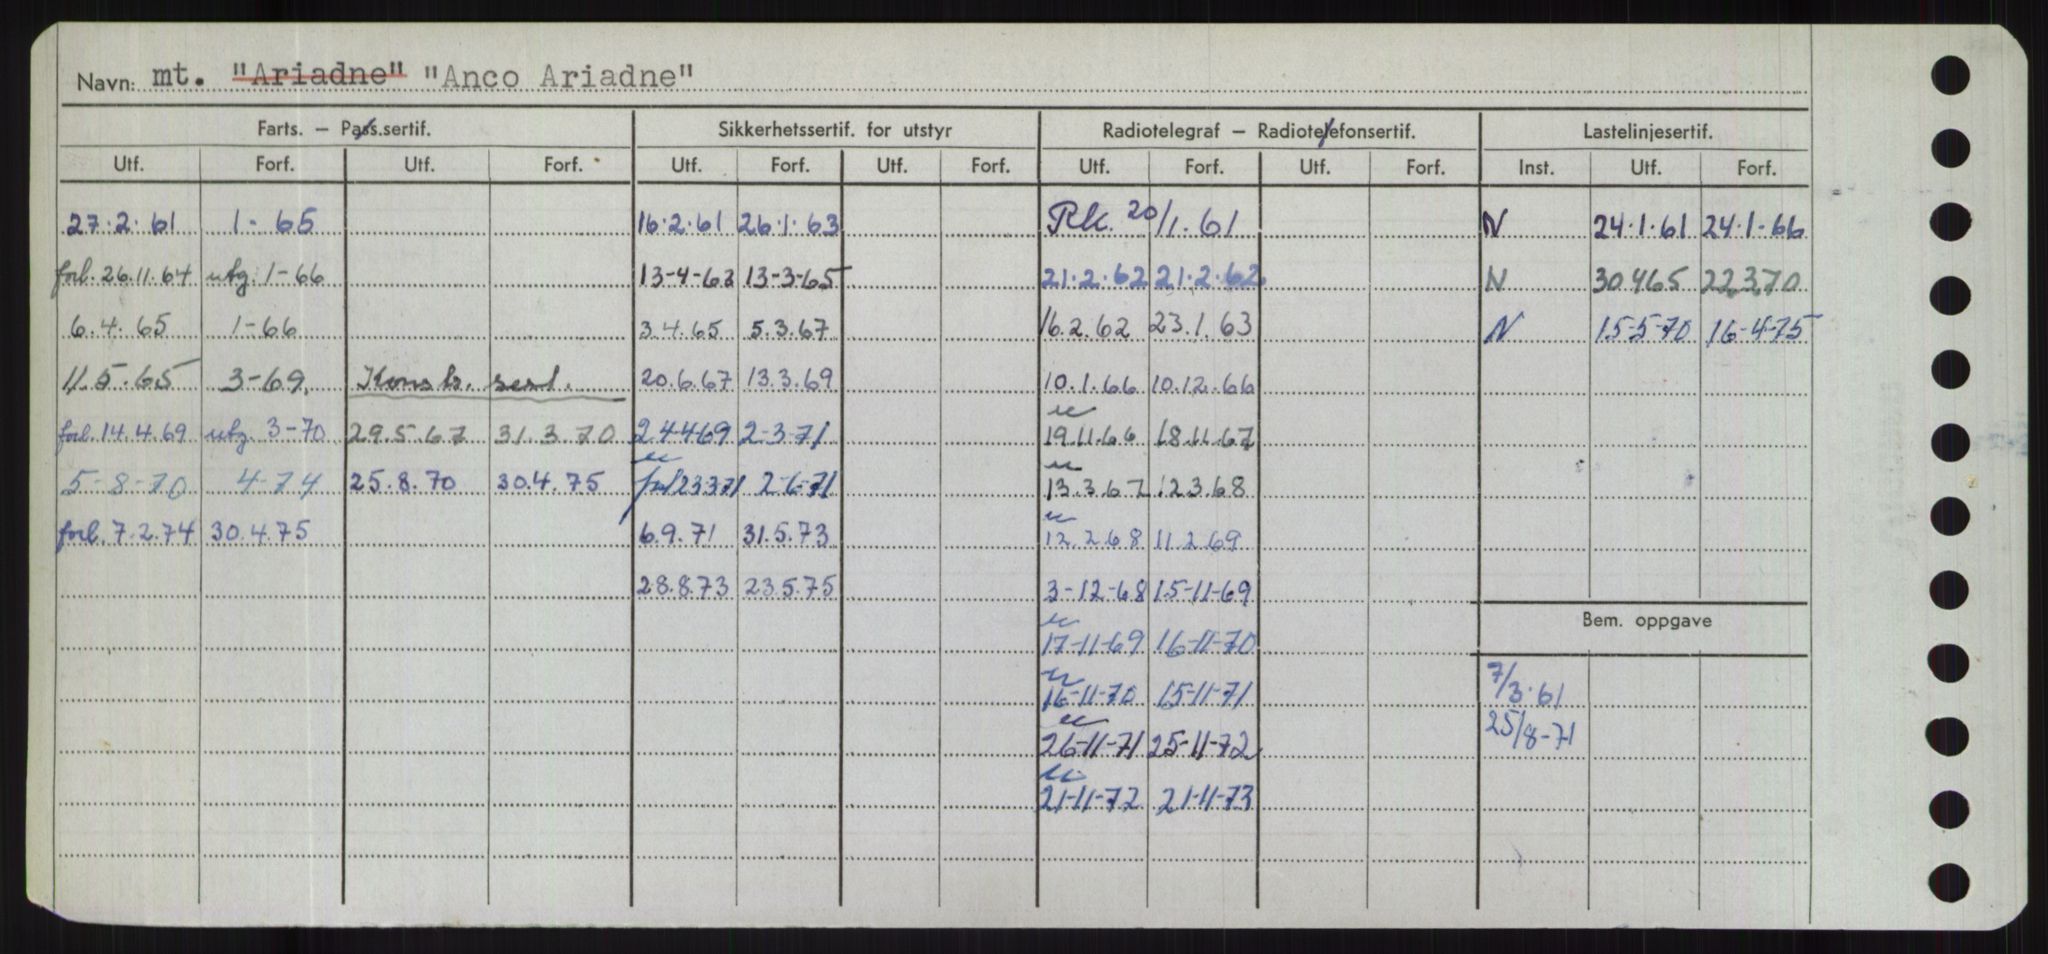 Navn: mt. "Ariadne" "Anco Ariadne"
Farts. — Pass.sertif. Sikkerhetssertif. for utstyr Radiotelegraf — Radiotelefonsertif. Lastelinjesertif.
Utf. Forf. Utf. Forf. Utf. Forf. Utf. Forf. Utf. Forf. Utf. Forf. Inst. Utf. Forf.
27.2.61 1-65 16.2.61 26.1.63 Rk. 20/1.61 N 24.1.61 24.1-66
forl. 26.11.64 utg. 1-66 13-4-63 13-3-65 21.2.62 21.2.62 N 30.4.65 22.3.70
6.4.65 1-66 3.4.65 5.3.67 16.2.62 23.1.63 N 15-5-70 16-4-75
11.5.65 3-69. Konstr. sert. 20.6.67 13.3.69 10.1.66 10.12.66
forl. 14.4.69 utg. 3-70 29.5.67 31.3.70 24.4.69 2-3-71 19.11.66 18.11.67
5-8-70 4-74 25.8.70 30.4.75 forl 23.3.71 2-6-71 13.3.67 12.3.68
forl. 7.2.74 30.4.75 6.9.71 31.5.73 12.2.68 11.2.69
28.8.73 23.5.75 3-12-68 15-11-69
Bem. oppgave
17-11-69 16-11-70
16-11-70 15-11-71 7/3.61
26-11-71 25-11-72 25/8-71
21-11-72 21-11-73